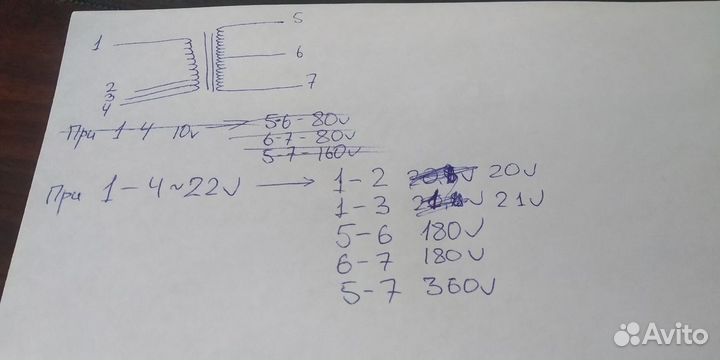 1
2
3
4
5
6
7
При 1-4 10v → 5-6-80v
6-7-80v
5-7-160v
При 1-4~22v → 1-2 20v
1-3 21v
5-6 180v
6-7 180v
5-7 360v
Avito